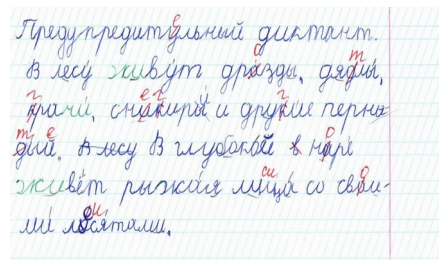 Предупредительный диктант.
В лесу живут дрозды, дятлы,
грачи, снегири и другие перна-
тые. В лесу В глубокой в норе
живёт рыжая лисица со свои-
ми лисятами.